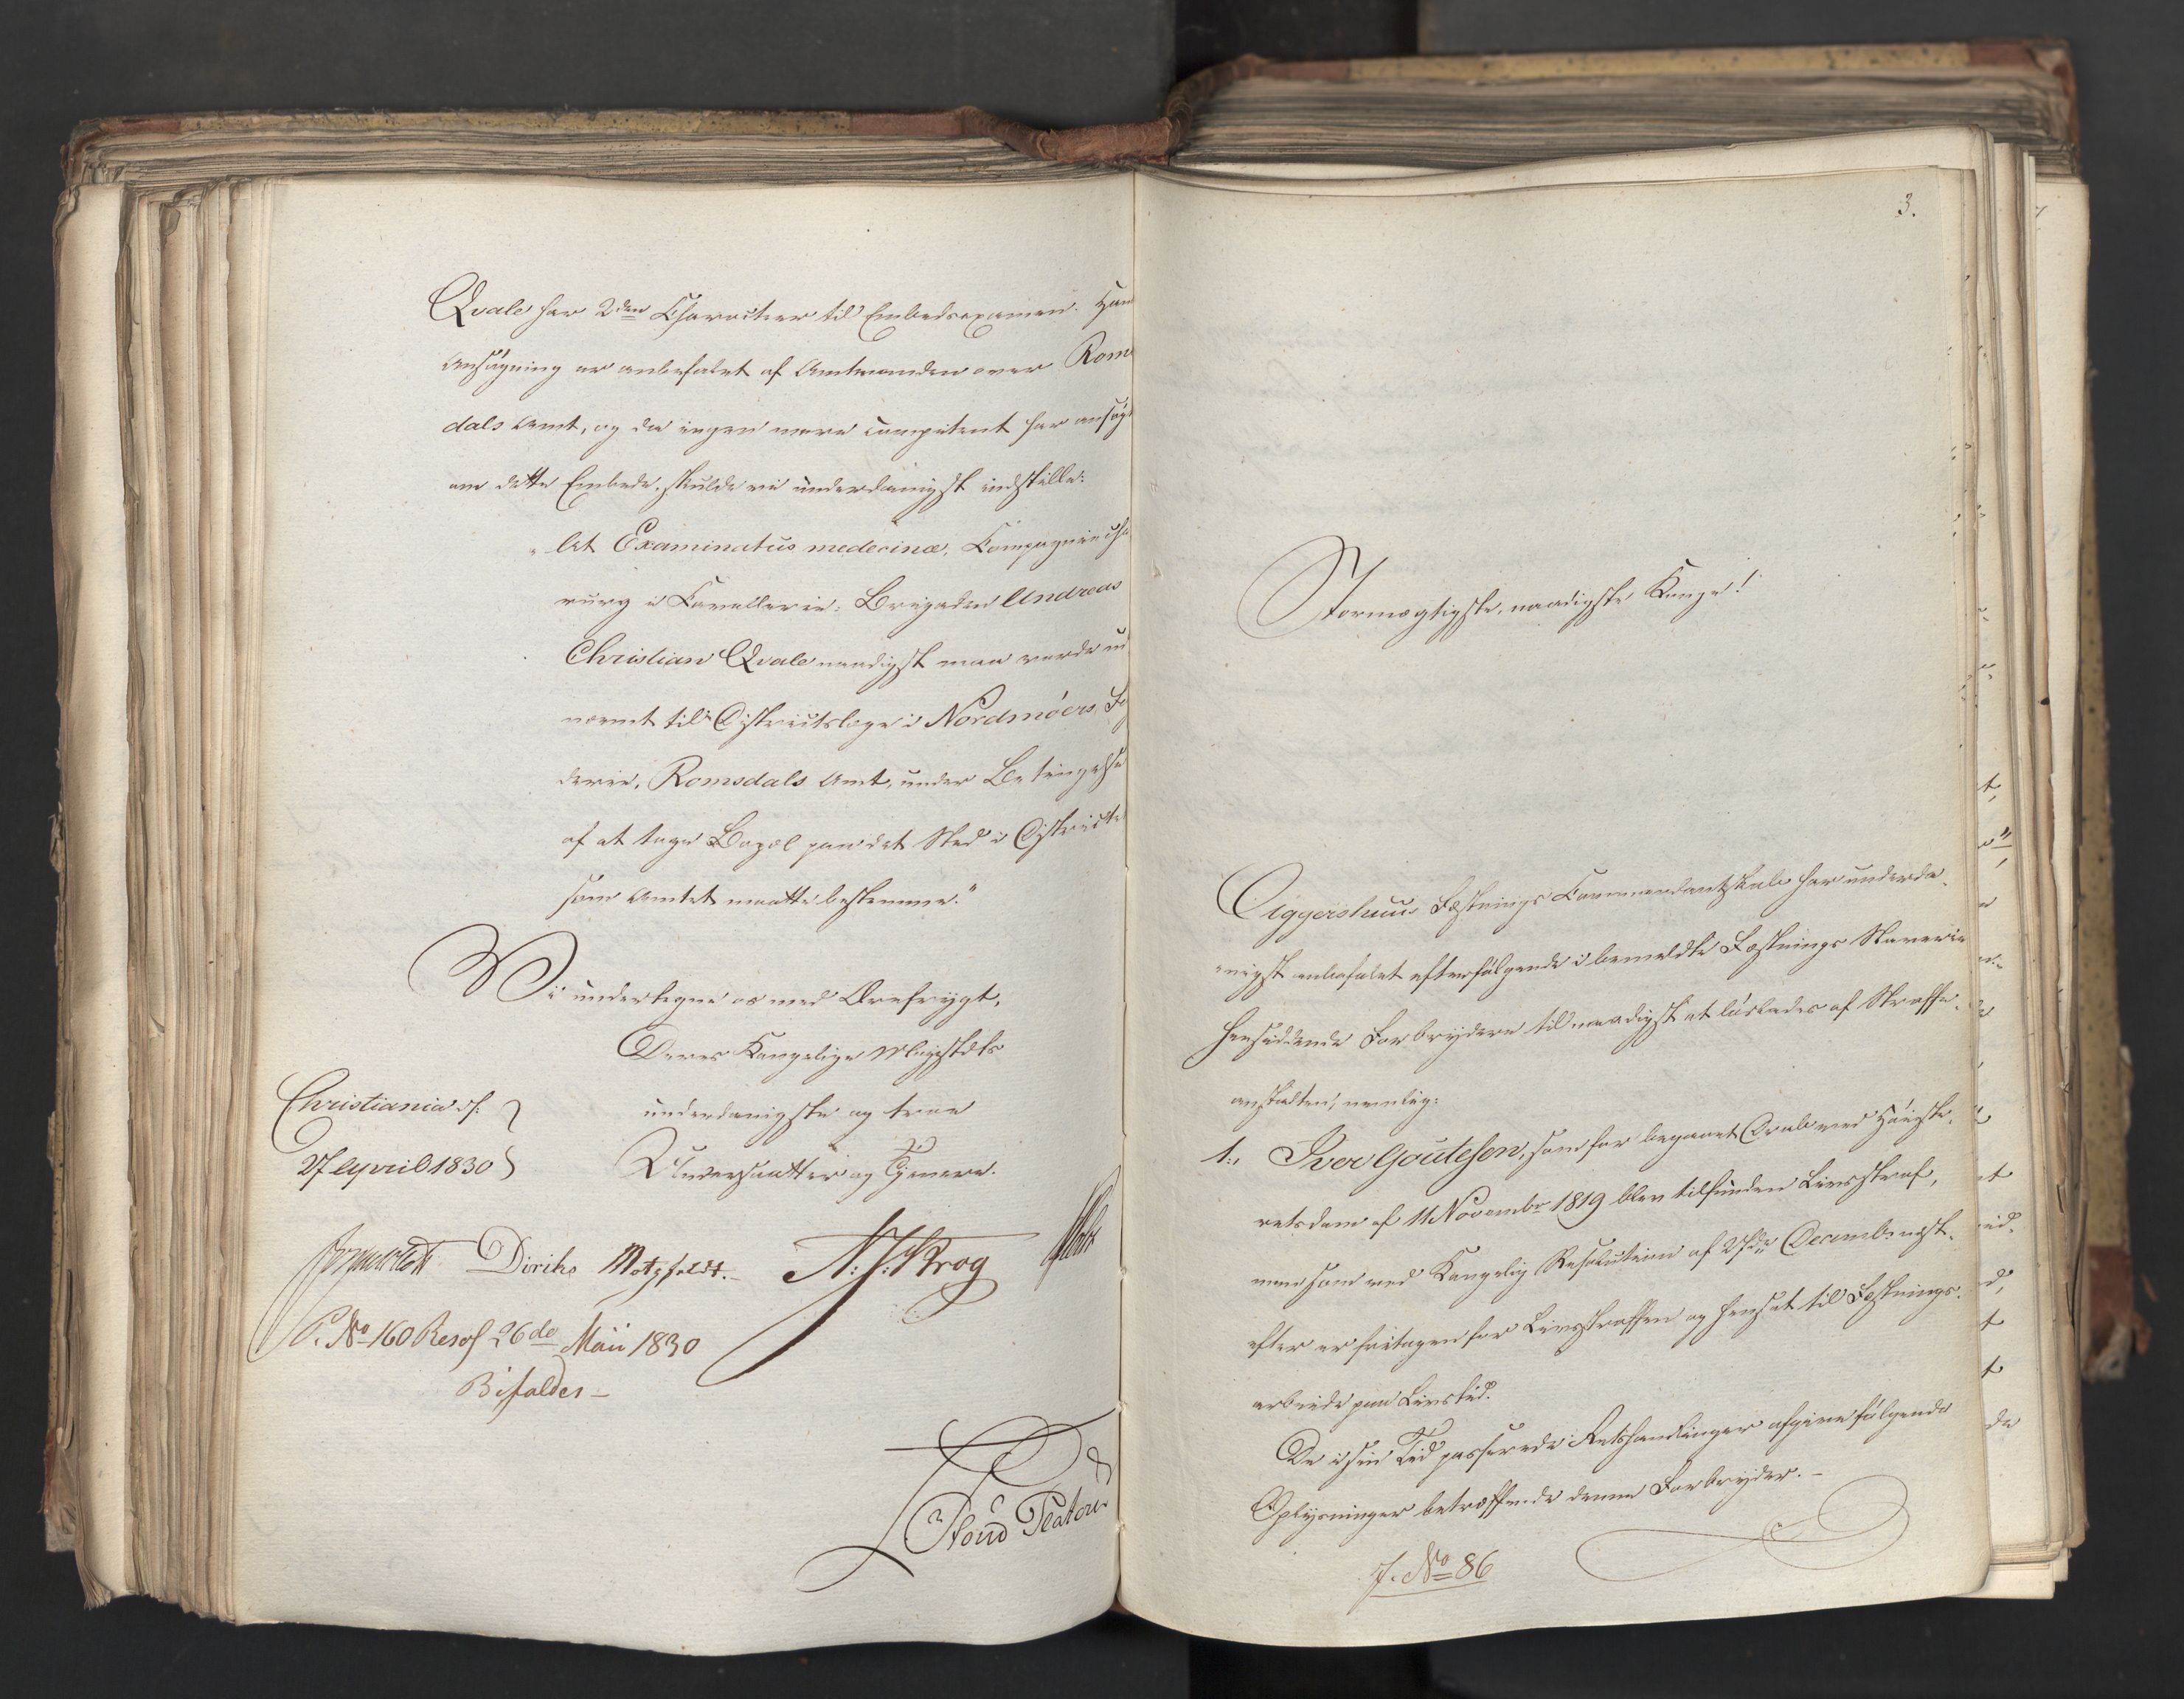 Qvale har 2den Characteer til Embedsexamen. Han
Ansøgning er anbefalet af Amtmanden over Rom
dals Amt, og da ingen mere competent har ansøgt
om dette Embede, skulde vi underdanigst indstille:
"At Examinatus medicinæ, Compagniechi
rurg i Cavallerie-Brigaden Andreas
Christian Qvale naadigst maa vorde ud
nævnt til Districtslæge i Nordmøers Fo
derie, Romsdals Amt, under Betingelse
af at tage Bopæl paa det Sted i Districte
som Amtet maatte bestemme."
Vi undertegne os med Ærefrygt,
Deres Kongelige Majestæts
Christiania d:
underdanigste og troe
27 April 1830
Undersaatter og Tjenere.
Diriks Motzfeldt. N: J: Krog
P. No 160 Resol 26de Maii 1830
Bifaldes
3.
Stormægtigste, naadigste Konge!
Aggershuus Fæstnings Commandantskab har underda-
nigst anbefalet efterfølgende i bemeldte Fæstnings Slaverie
hensiddende Forbrydere til naadigst at løslades af Straffe-
anstalten, nemlig:
1., Iver Goutesen, som for begaaet Drab ved Høieste-
retsdom af 11 Novembr 1819 blev tilfunden Livsstraf,
men som ved Kongelig Resolution af 27de Decemb: næst-
efter er fritagen for Livsstraffen og hensat til Fæstnings-
arbeide paa Livstid.
De i sin Tid passerede Retshandlinger afgive følgende
Oplysninger betræffende denne Forbryder. –
J. No 86